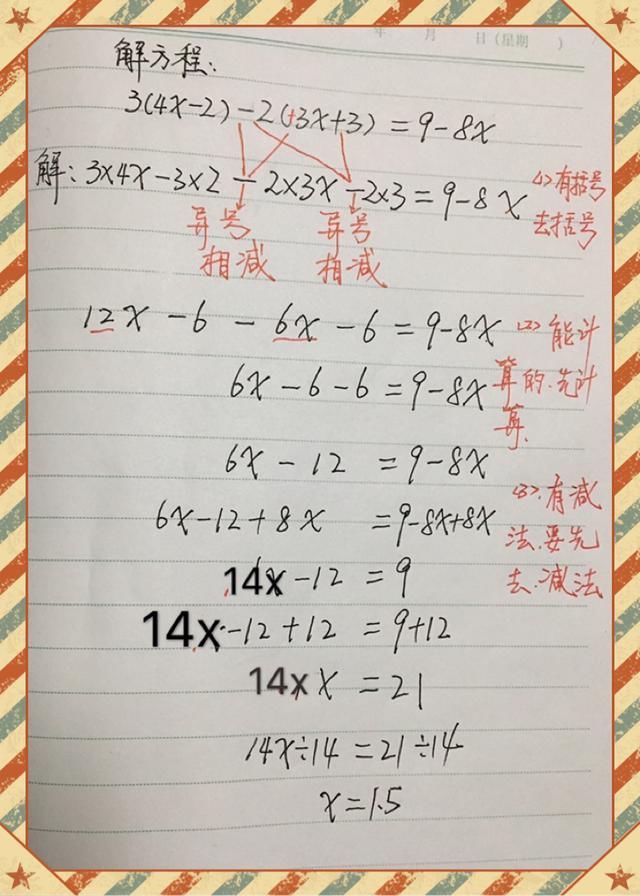 年 月 日(星期 )
解方程:
3(4x-2)-2(+3x+3)=9-8x
解:3×4x-3×2-2×3x-2×3=9-8x
<1>有括号
去括号
异号 异号
相减 相减
12x-6-6x-6=9-8x
<2>能计
6x-6-6=9-8x
算的.先计
算.
6x-12=9-8x
<3>.有减
6x-12+8x=9-8x+8x
法.要先
14x-12=9
去.减法
14x-12+12=9+12
14x x=21
14x÷14=21÷14
x=1.5